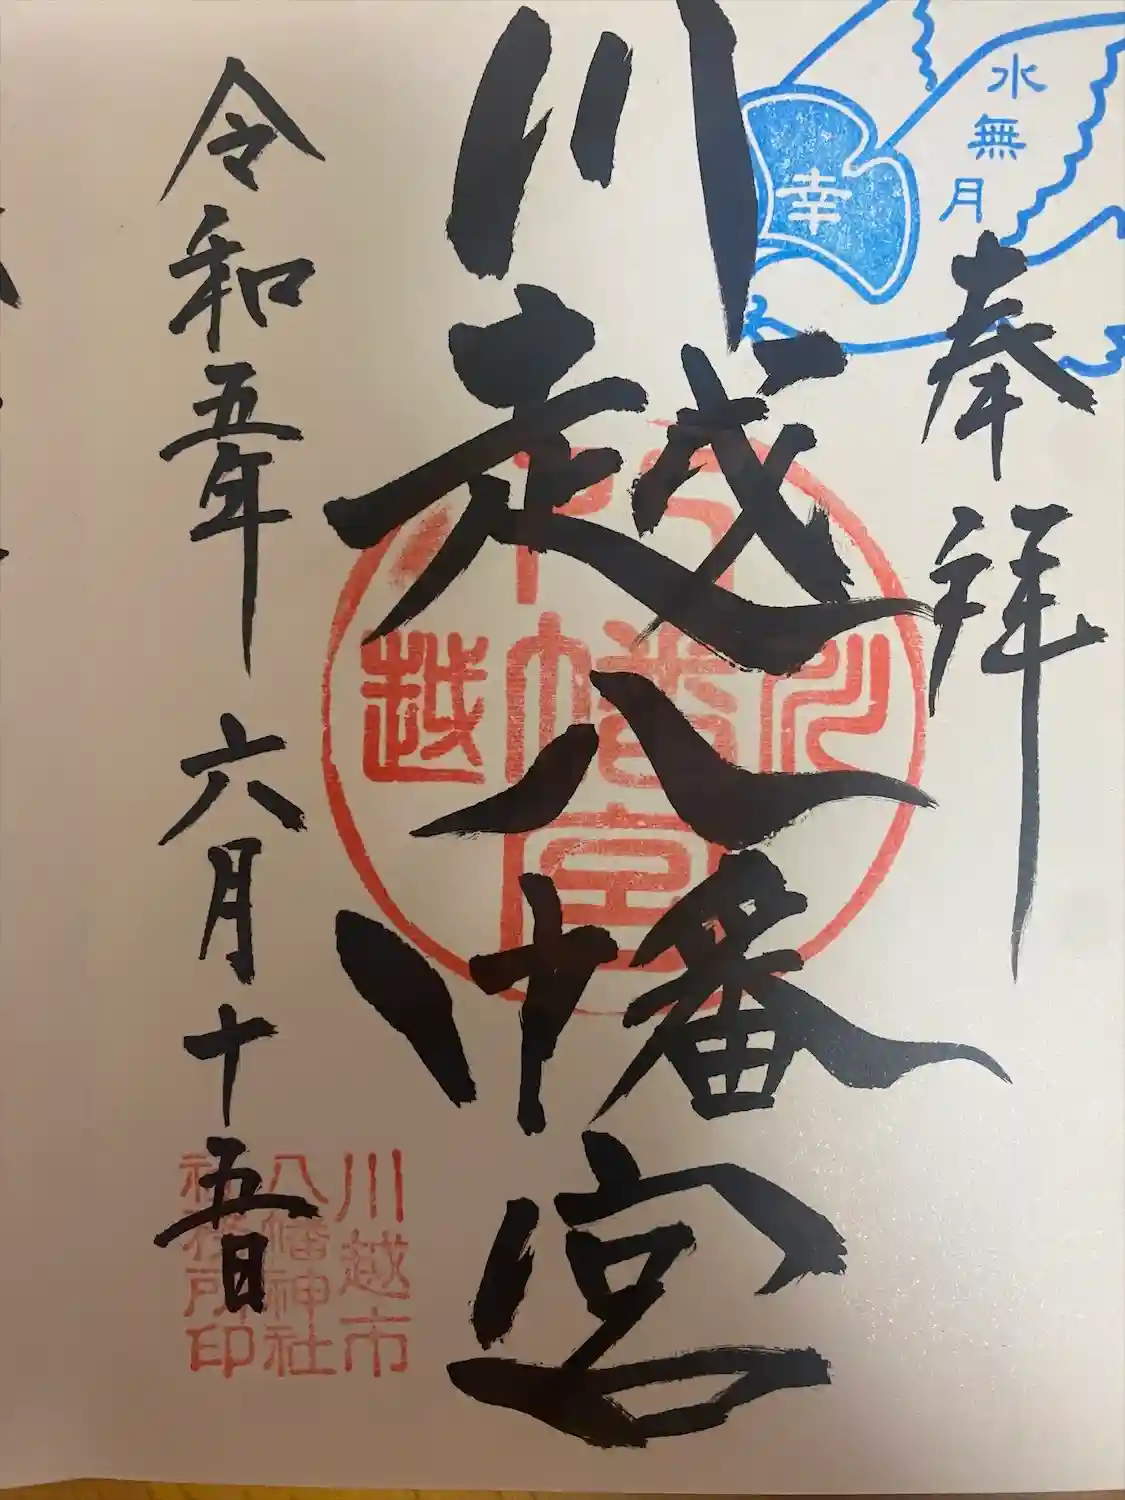 奉拝
水無月
幸
川越八幡宮
八幡宮
川
越
令和五年 六月十五日
川越市
八幡神社
社務所印